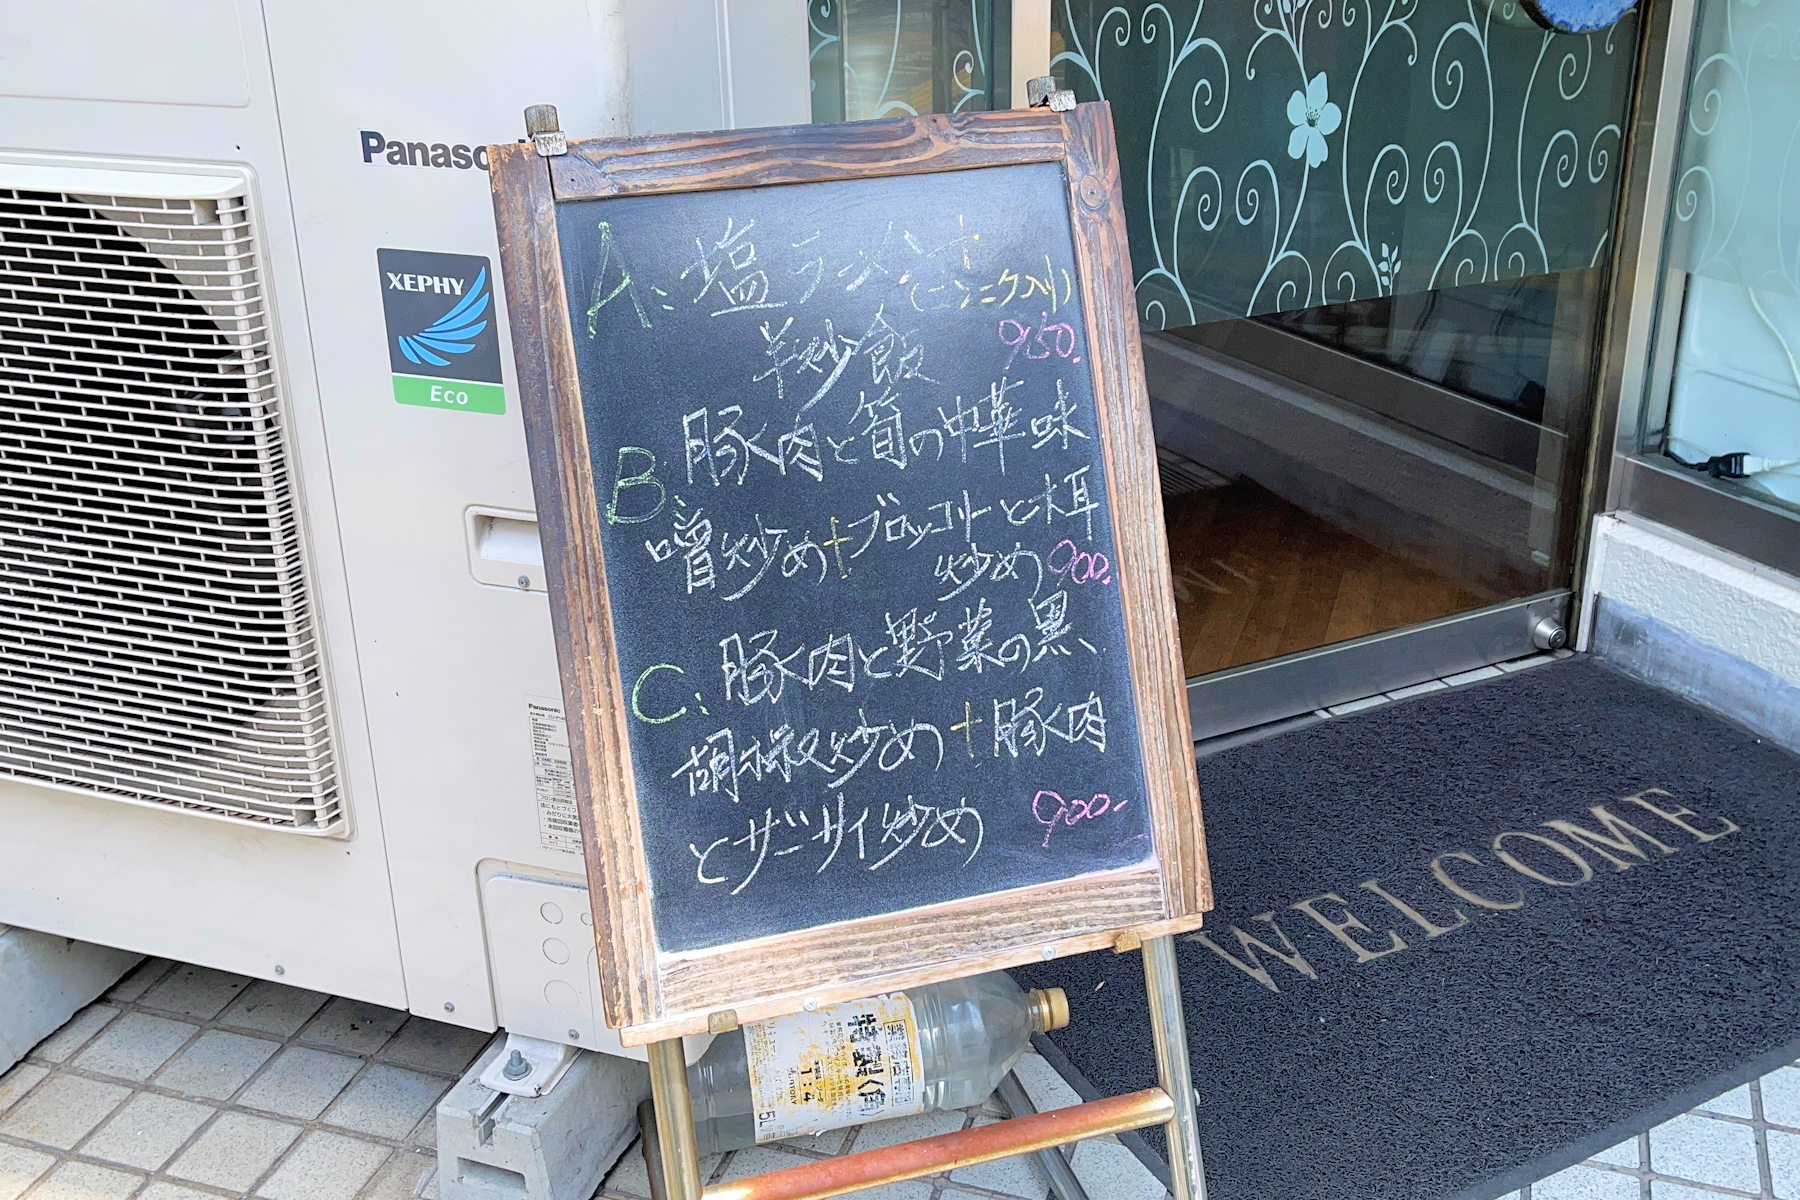 Panaso
XEPHY
Eco
A: 塩ラーメン+
(ニンニク入り)
半炒飯 950.
B: 豚肉と筍の中華味
噌炒め+ブロッコリーと木耳
炒め 900.
C: 豚肉と野菜の黒、
胡椒炒め+豚肉
とザーサイ炒め 900-
Panasonic
WELCOME
1:4
5L